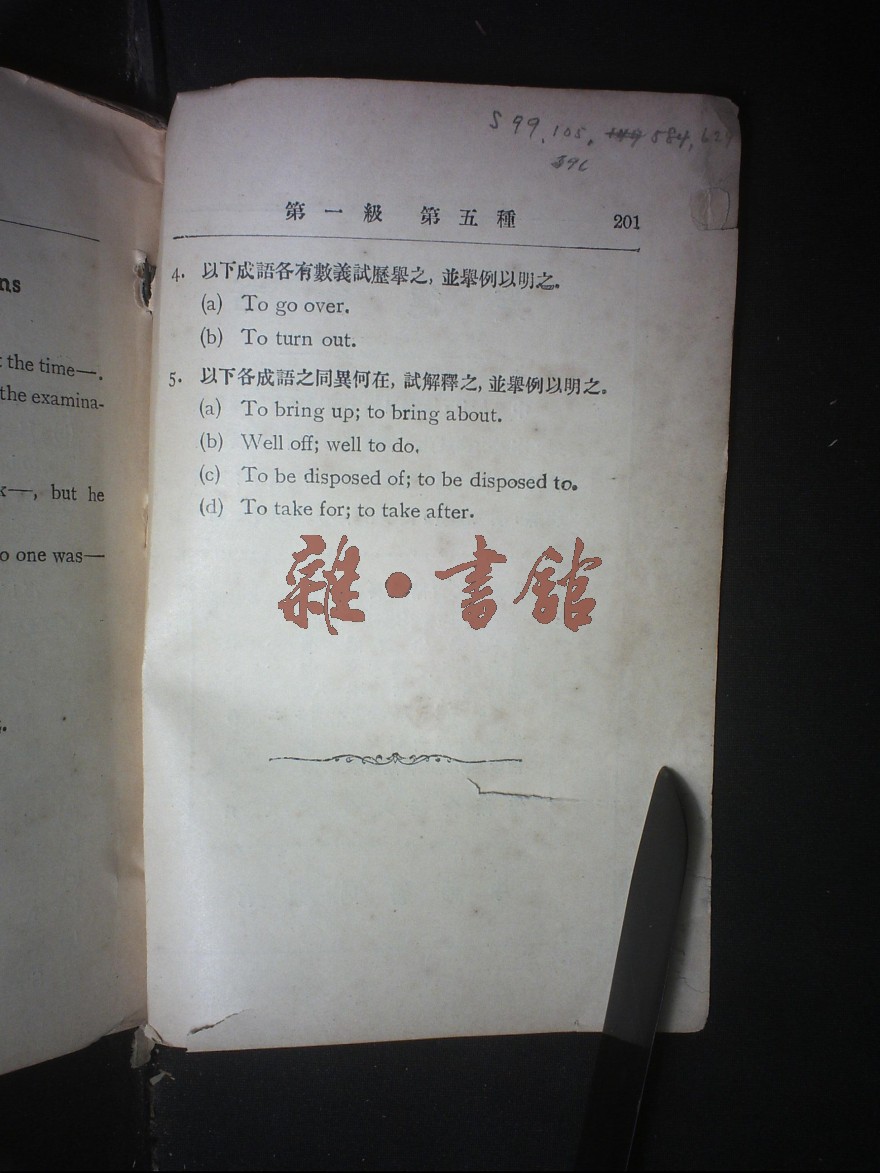 ns
the time—.
the examina-
—, but he
o one was—
S 99, 105, 149 584, 629
596
第一級 第五種 201
4. 以下成語各有數義試歷舉之, 並舉例以明之.
(a) To go over.
(b) To turn out.
5. 以下各成語之同異何在, 試解釋之, 並舉例以明之.
(a) To bring up; to bring about.
(b) Well off; well to do.
(c) To be disposed of; to be disposed to.
(d) To take for; to take after.
雜·書館